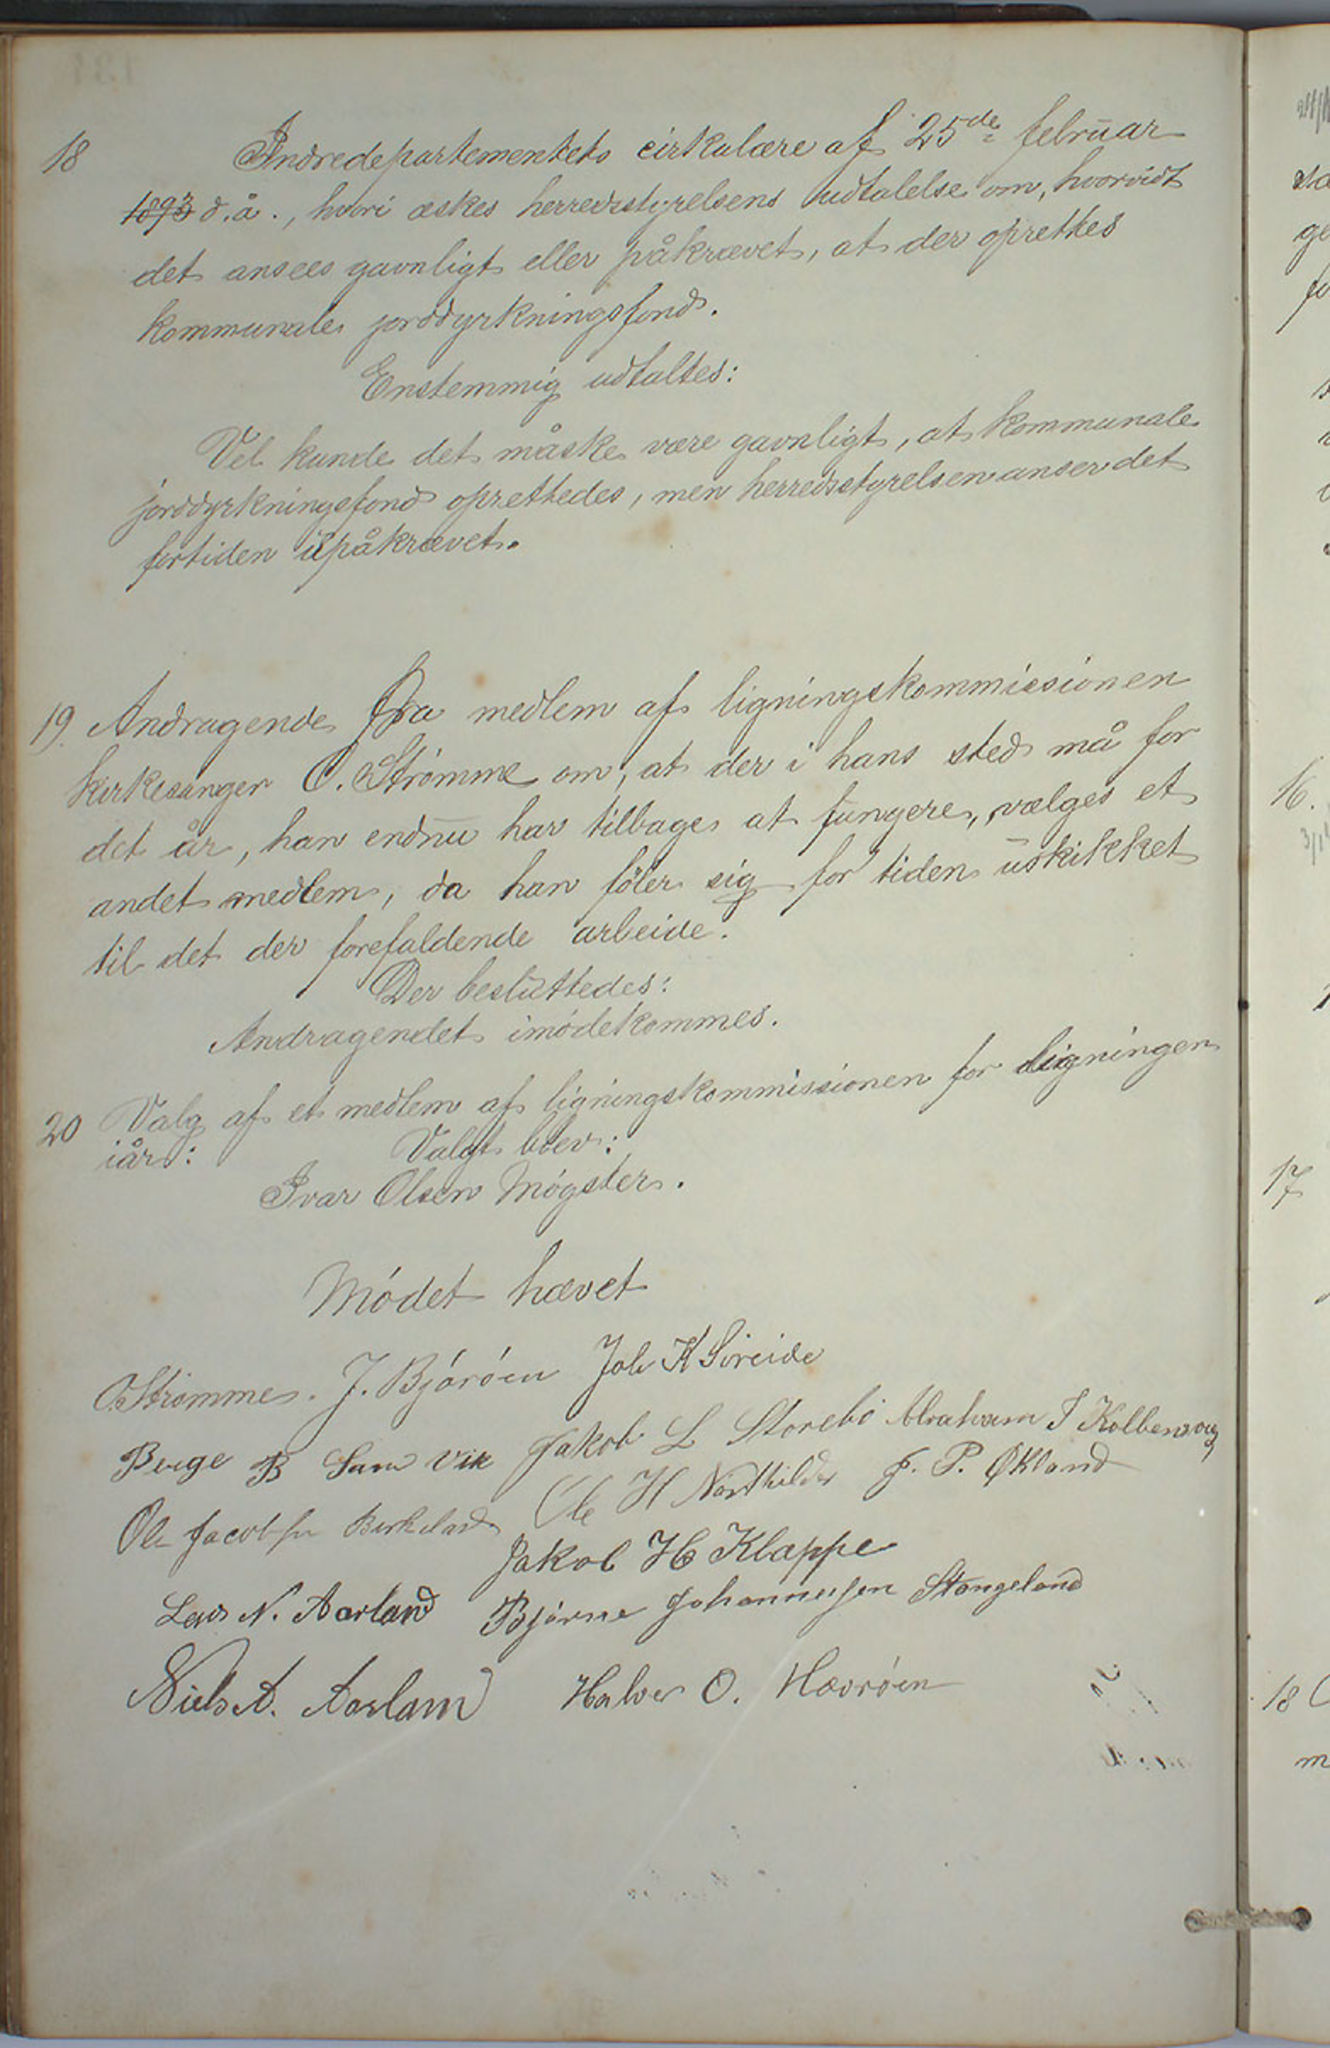 18 Indredepartementets cirkulære af 25de februar
1893 d.å., hvori æskes herredsstyrelsens udtalelse om, hvorvidt
det ansees gavnligt eller påkrævet, at der oprettes
kommunale jorddyrkningsfond.
Enstemmig udtaltes:
Vel kunde det måske være gavnligt, at kommunale
jorddyrkningsfond oprettedes, men herredsstyrelsen anser det
fortiden upåkrævet.
19. Andragende fra medlem af ligningskommissionen
kirkesanger O. Strømme om, at der i hans sted må for
det år, han endnu har tilbage at fungere, vælges et
andet medlem, da han føler sig for tiden uskikket
til det der forefaldende arbeide.
Der besluttedes:
Andragendet imødekommes.
20 Valg af et medlem af ligningskommissionen for ligningen
iår:
Valgt blev:
Ivar Olsen Møgster.
Mødet hævet
O. Strømme. J. Bjóróen Joh K Søreide
Berge B Sam Vik Jakob L Storebø Abraham I Kolbensvaag
Ole Jacobsen Birkeland Ole H Nordhilder J. P. Økland
Jakob H Klappe
Lars N. Aarland Bjørne Johannessen Stangeland
Niels A. Aarland Halver O. Hævrøen
16.
17
18